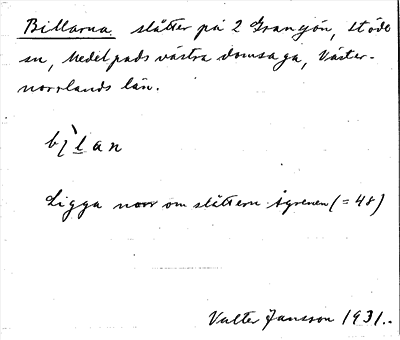 Billarna slåtter på 2 Gransjön, Stöde
sn, Medelpads västra domsaga, Väster-
norrlands län.
bìlan
Ligga norr om slåttern Ågrenen (= 48)
Valter Jansson 1931.